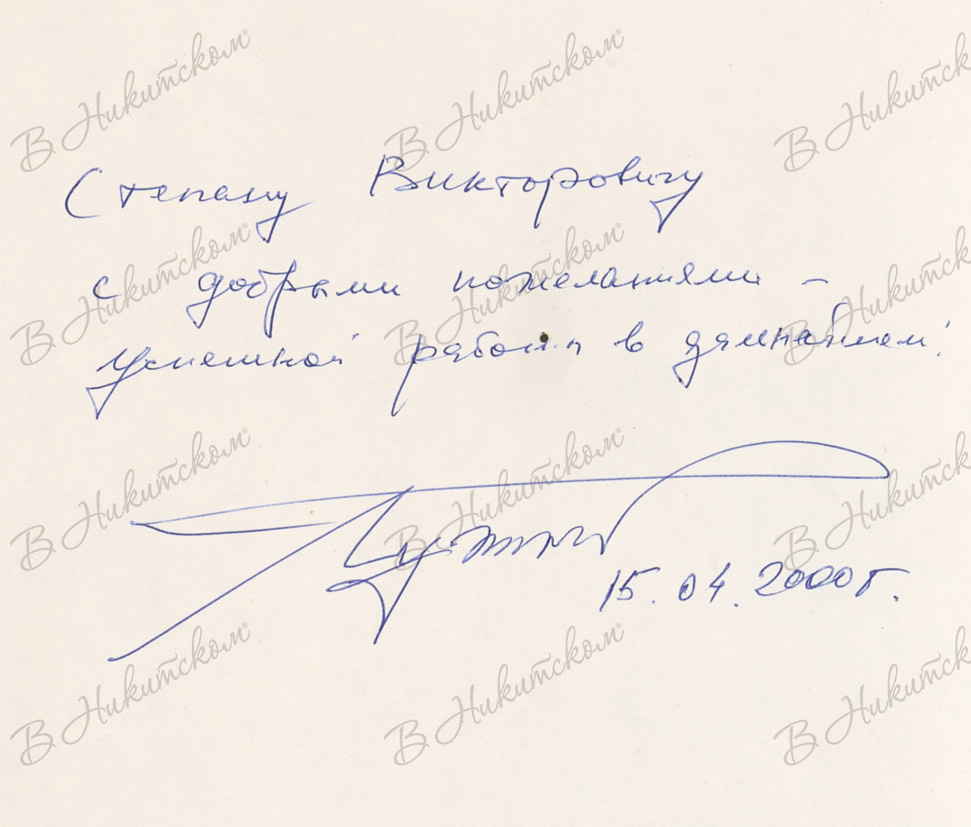 В Никитском В Никитском В Никитск
Степану Викторовичу
В Никитском В Никитском В Никитск
с добрыми пожеланиями –
успешной работы в дальнейшем!
В Никитском В Никитском В Никитск
15.04.2000г.
В Никитском В Никитском В Никитск